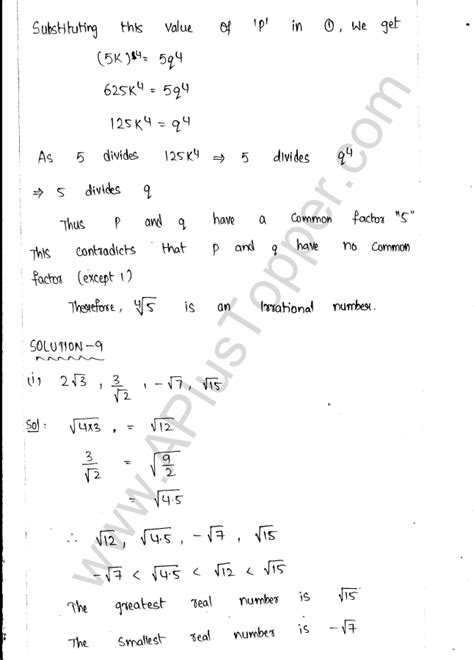 Substituting this value of 'P' in ①, we get
(5K)⁴ = 5q⁴
625K⁴ = 5q⁴
125K⁴ = q⁴
As 5 divides 125K⁴ ⇒ 5 divides q⁴
⇒ 5 divides q
Thus P and q have a common factor "5"
This contradicts that P and q have no common
factor (except 1)
Therefore, ∜5 is an Irrational number.
SOLUTION-9
(i) 2√3, 3/√2, -√7, √15
Sol: √4×3, = √12
3/√2 = √9/2
= √4.5
∴ √12, √4.5, -√7, √15
-√7 < √4.5 < √12 < √15
The greatest real number is √15
The smallest real number is -√7
www.APlusTopper.com